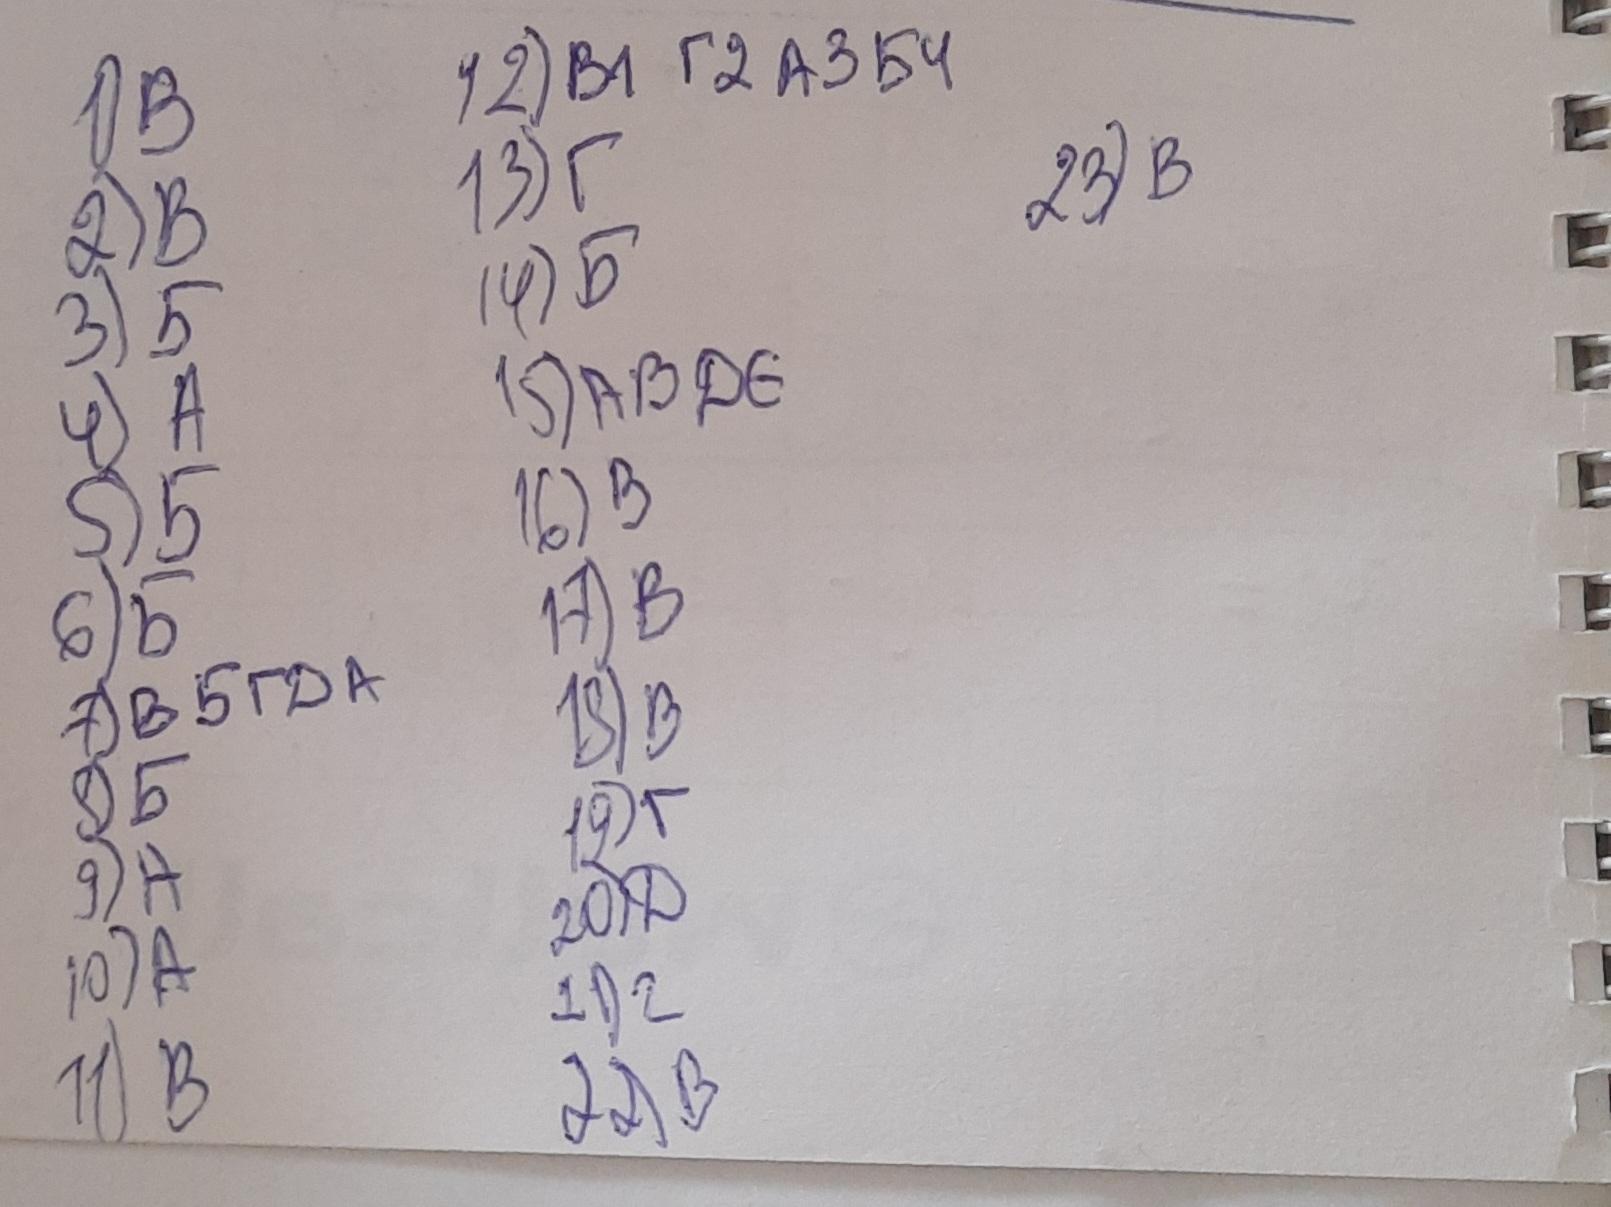 1) В
2) В
3) Б
4) А
5) Б
6) Б
7) В Б Г Д А
8) Б
9) А
10) А
11) В
12) В1 Г2 А3 Б4
13) Г
14) Б
15) А В Д Е
16) В
17) В
18) В
19) Г
20) Д
21) 2
22) В
23) В